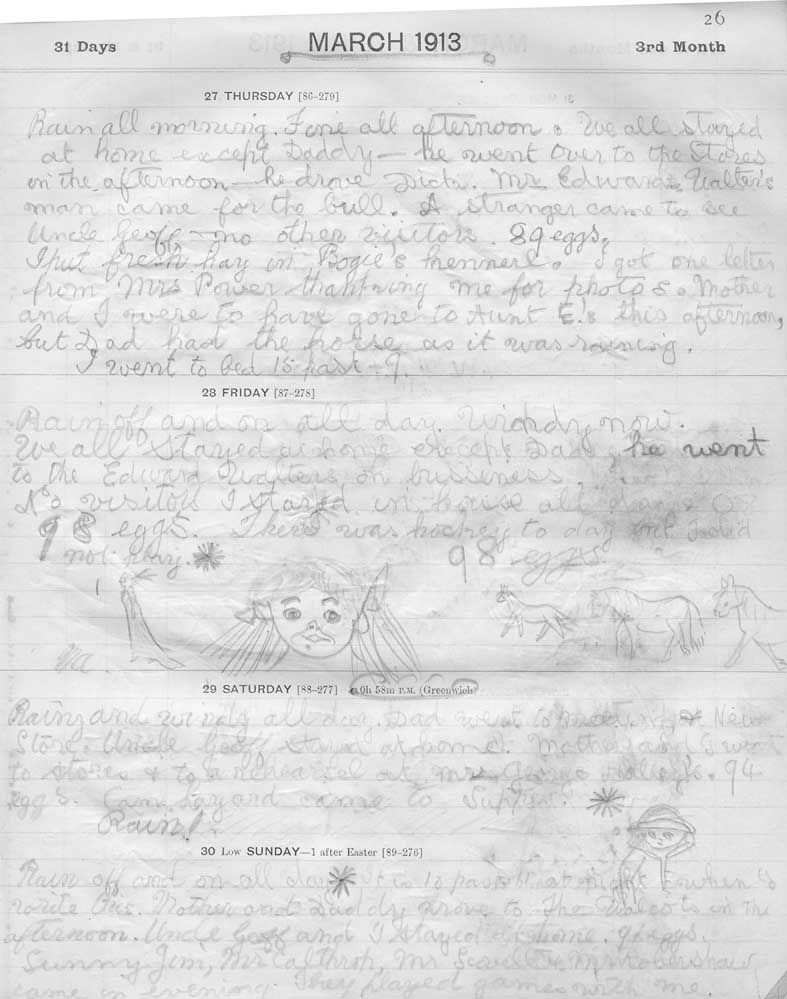 26
31 Days MARCH 1913 3rd Month
27 THURSDAY [86-279]
Rain all morning. Fine all afternoon. We all stayed
at home except Daddy — he went over to the Stores
in the afternoon — he drove Dick. Mr Edward Walter's
man came for the bull. A stranger came to see
Uncle Geoff — no other visitors. 89 eggs.
I put fresh hay in Bogie's kennel. I got one letter
from Mrs Power thanking me for photos. Mother
and I were to have gone to Aunt E.'s this afternoon,
but Dad had the horse as it was raining.
I went to bed 15 past 9.
28 FRIDAY [87-278]
Rain off and on all day. Windy now.
We all stayed at home except Dad, he went
to the Edward Walters on business
No visitors I stayed in house all day
98 eggs. There was hockey to day but I did
not play.
98 eggs
29 SATURDAY [88-277] 0h 58m P.M. (Greenwich)
Rainy and windy all day. Dad went to meeting at New
Store. Uncle Geoff stayed at home. Mother and I went
to stores & to a rehearsel at Mrs George 94
eggs. Cam Layard came to supper.
Rain!
30 Low SUNDAY—1 after Easter [89-276]
Rain off and on all day. It is 10 past at night when I
write this. Mother and Daddy drove to the in the
afternoon. Uncle Geoff and I stayed at home. eggs.
Sunny Jim, Mr Calthrop, Mr Scovell &
came in evening. They played games with me.